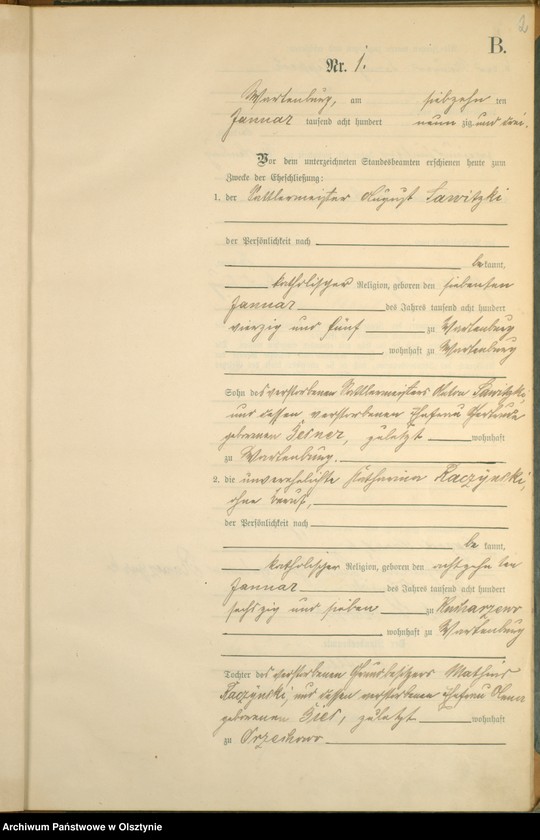 2
B.
Nr. 1.
Wartenburg, am siebzehn ten
Januar tausend acht hundert neun zig und drei.
Vor dem unterzeichneten Standesbeamten erschienen heute zum
Zwecke der Eheschließung:
1. der Sattlermeister August Lawitzki
der Persönlichkeit nach
be kannt,
katholischer Religion, geboren den siebenten
Januar des Jahres tausend acht hundert
vierzig und fünf zu Wartenburg
, wohnhaft zu Wartenburg
Sohn des verstorbenen Sattlermeisters Anton Lawitzki,
und dessen verstorbenen Ehefrau Gertrude
geborenen Tesner, zuletzt wohnhaft
zu Wartenburg.
2. die unverehelichte Katharina Kaczynski,
ohne Beruf,
der Persönlichkeit nach
be kannt,
katholischer Religion, geboren den achtzehn ten
Januar des Jahres tausend acht hundert
sechszig und sieben zu
, wohnhaft zu Wartenburg
Tochter des verstorbenen Grundbesitzers Mathias
Kaczynski, und dessen verstorbenen Ehefrau Anna
geborenen zuletzt wohnhaft
zu Orzechowo
Archiwum Państwowe w Olsztynie